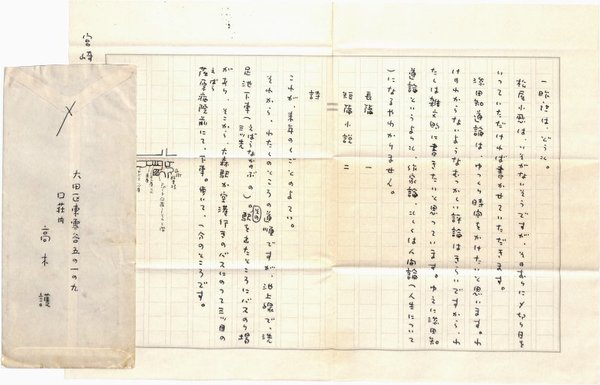 一昨日は、どうも。
松尾小悪は、いそがないそうですが、そのむねに〆切り日を
いっていただければ書かせていただきます。
添田知道論は、ゆっくり時間をかけたいと思います。わ
けのわからないようなむつかしい評論はきらいですから、わ
たしは雑文的に書きたいと思っています。ゆえに添田知
道論というよりも、作家論、もしくは人間論（人生について）
になるやわかりません。
長篇 一
短篇小説 二
詩
これが、来年のしごとのよていです。
それから、わたしのところの道順ですが、池上線で、洗
足池下車（えばらなかのぶの三つ先）。駅を出たところにバスのり場
があり、そこから大森駅か空港行きのバスにのって三つ目の
えばら
荏原病院前にて、下車。歩いて、一分のところです。
宮崎
大田区東雪谷五の一の九
口萩内
高木護